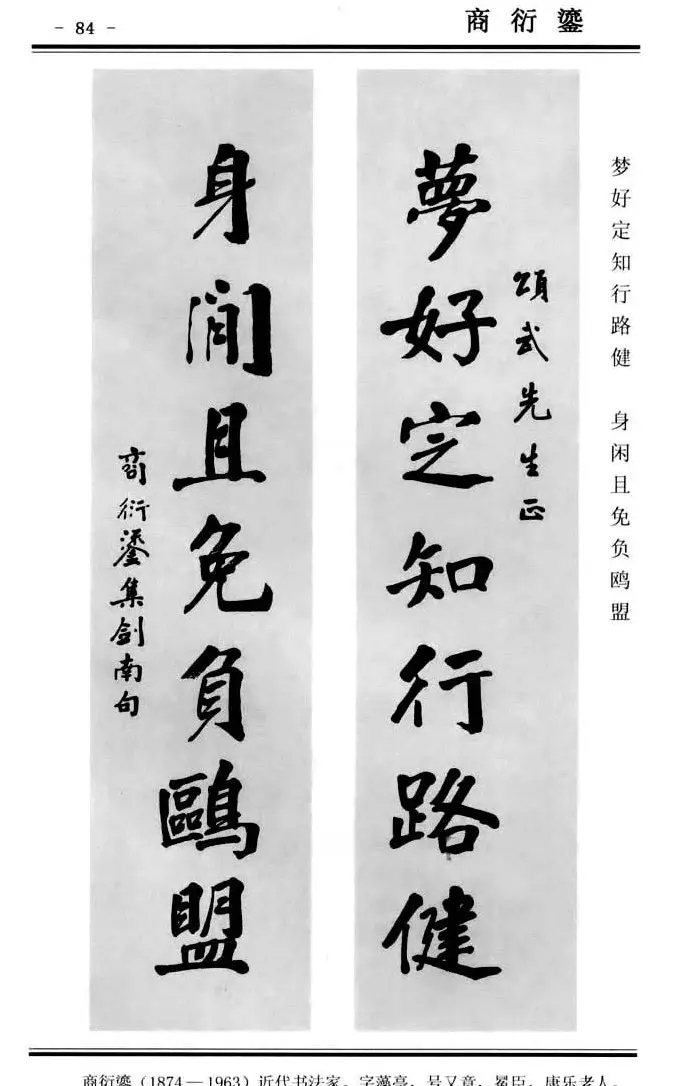 - 84 -
商衍鎏
梦好定知行路健 身闲且免负鸥盟
頌武先生正
夢好定知行路健
身閒且免負鷗盟
商衍鎏集劍南句
商衍鎏（1874—1963）近代书法家。字藻亭，号又章，冕臣，康乐老人。